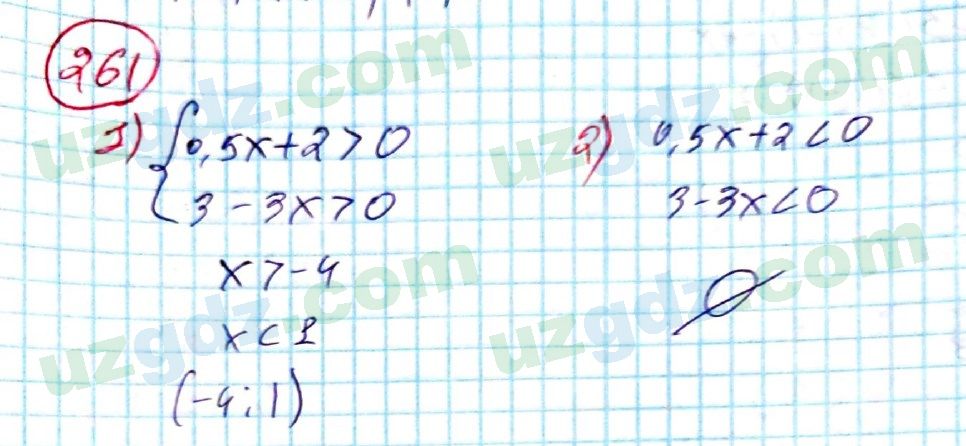 261
1) { 0,5x+2>0
3-3x>0
x>-4
x<1
(-4;1)
2) 0,5x+2<0
3-3x<0
∅
uzgdz.com
uzgdz.com
uzgdz.com
uzgdz.com